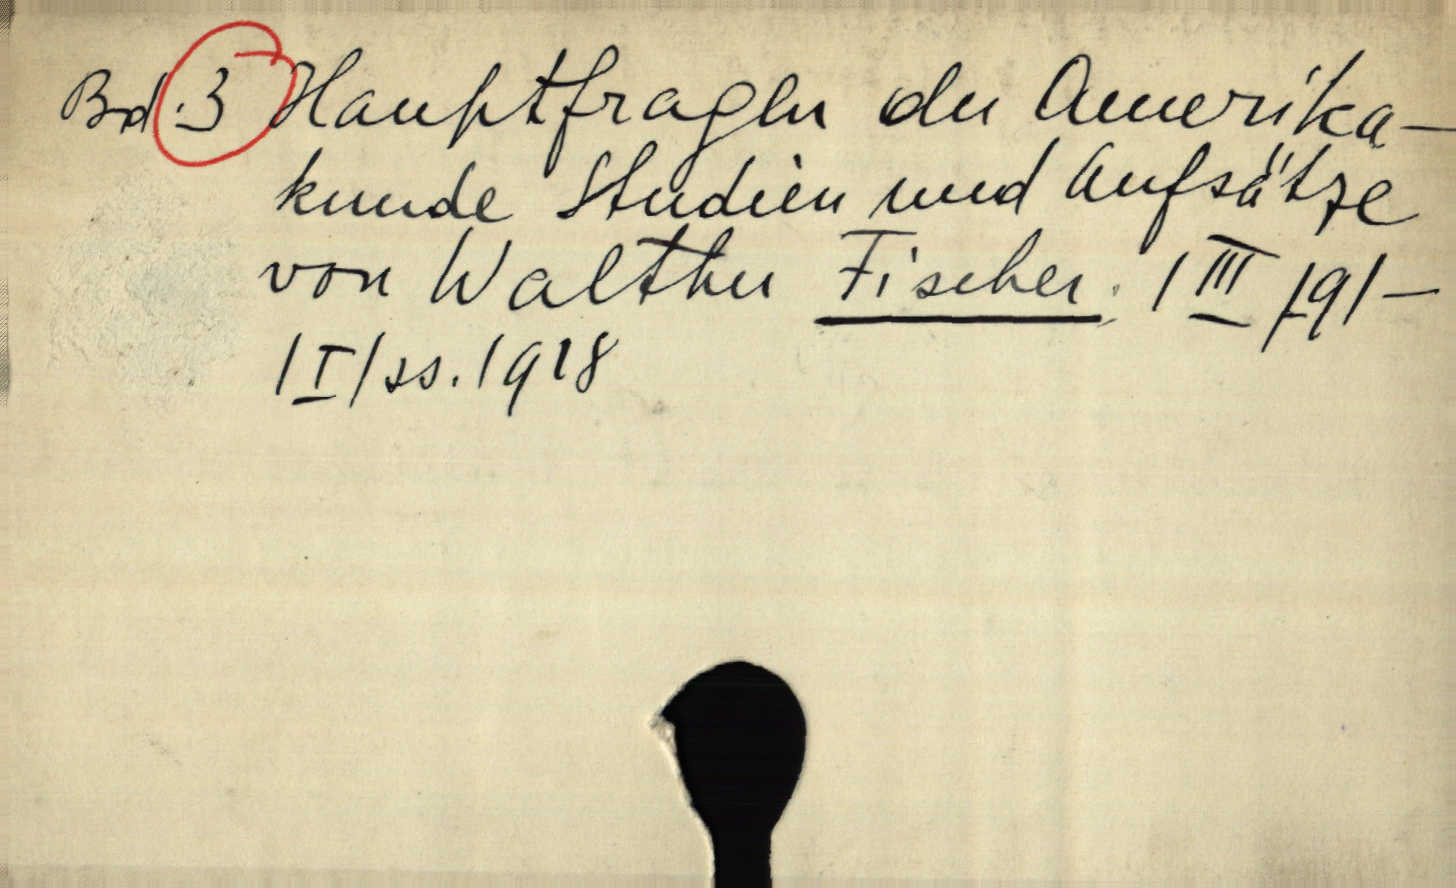 Bd. 3 Hauptfragen der Amerika-
kunde Studien und Aufsätze
von Walther Fischer. /III/91-
/I/ss. 1918